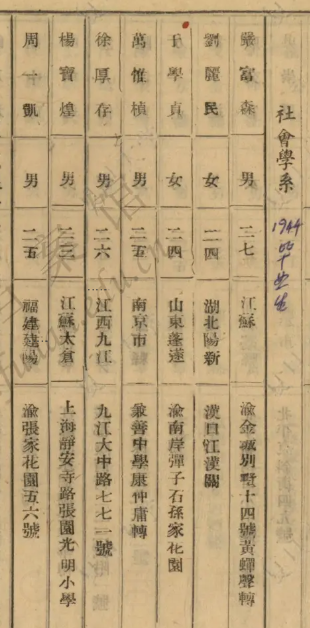 社會學系 1944畢業生
嚴富森 男 二七 江蘇 渝金臧别墅十四號黃蟬聲轉
劉麗民 女 二四 湖北陽新 漢口江漢關
王學貞 女 二四 山東蓬萊 渝南岸彈子石孫家花園
萬惟楨 男 二五 南京市 兼善中學康仲庸轉
徐厚存 男 二六 江西九江 九江大中路七七一號
楊寶煌 男 二三 江蘇太倉 上海靜安寺路張園光明小學
周一凱 男 二五 福建建陽 渝張家花園五六號